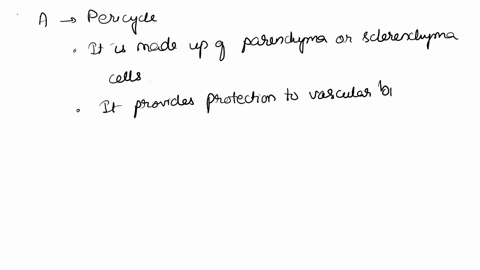 A → Pericycle
• It is made up of parenchyma or sclerenchyma
cells
• It provides protection to vascular b